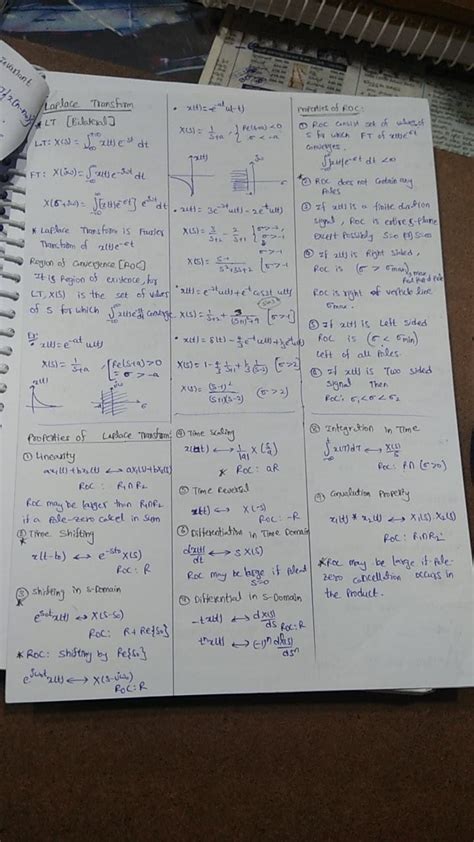 Laplace Transform
* LT [Bilateral]
LT: X(s) = ∫_{-∞}^{+∞} x(t) e^{-st} dt
FT: X(jω) = ∫_{-∞}^{∞} x(t) e^{-jωt} dt
X(σ+jω) = ∫_{-∞}^{∞} [x(t) e^{-σt}] e^{-jωt} dt
* Laplace Transform is Fourier
Transform of x(t) e^{-σt}
Region of Convergence [ROC]
It is Region of existence, for
LT, X(s) is the set of values
of s for which ∫ x(t) e^{-st} dt converge.
Ex:
• x(t) = e^{-at} u(t)
X(s) = 1/(s+a), { Re(s+a) > 0
= σ > -a
• x(t) = -e^{-at} u(-t)
X(s) = 1/(s+a), { Re(s+a) < 0
σ < -a
x(t)
• x(t) = 3e^{-2t} u(t) - 2e^{-t} u(t)
X(s) = 3/(s+2) - 2/(s+1) { σ > -2, σ > -1
X(s) = (s-1)/(s²+3s+2) { σ > -1
X(s) = 1 - 4/3 1/(s+1) + 1/3 1/(s-2) (σ > 2)
X(s) = (s-1)²/((s+1)(s-2)) (σ > 2)
Properties of ROC:
① ROC consist set of values of
s for which FT of x(t) e^{-σt}
converges.
② ROC does not contain any
Poles
③ If x(t) is a finite duration
signal, ROC is entire s-plane
except Possibly s=0 (or) s=∞
If x(t) is Right sided,
ROC is (σ > σmax)
ROC is right of vertical line
σmax.
⑤ If x(t) is Left sided
ROC is (σ < σmin)
Left of all Poles.
⑥ If x(t) is Two sided
signal Then
ROC: σ₁ < σ < σ₂
Properties of Laplace Transform:
① Linearity
ax₁(t) + bx₂(t) ⟷ aX₁(s) + bX₂(s)
ROC: R₁∩R₂
ROC may be larger than R₁∩R₂
if a Pole-zero cancel in sum
② Time Shifting
x(t-t₀) ⟷ e^{-st₀} X(s)
ROC: R
③ Shifting in S-Domain
e^{s₀t} x(t) ⟷ X(s-s₀)
ROC: R + Re{s₀}
* ROC: Shifting by Re{s₀}
e^{jω₀t} x(t) ⟷ X(s-jω₀)
ROC: R
④ Time Scaling
x(at) ⟷ 1/|a| X(s/a)
ROC: aR
⑤ Time Reversal
x(-t) ⟷ X(-s)
ROC: -R
⑥ Differentiation in Time Domain
dx(t)/dt ⟷ s X(s)
ROC may be large if Pole at
s=0
⑦ Differential in S-Domain
-t x(t) ⟷ dX(s)/ds ROC: R
tⁿ x(t) ⟷ (-1)ⁿ dⁿX(s)/dsⁿ
⑧ Integration in Time
∫_{-∞}^{t} x(τ) dτ ⟷ X(s)/s
ROC: R∩(σ>0)
⑨ Convolution Property
x₁(t) * x₂(t) ⟷ X₁(s) X₂(s)
ROC: R₁∩R₂
* ROC may be large if Pole-
zero cancellation occurs in
the Product.